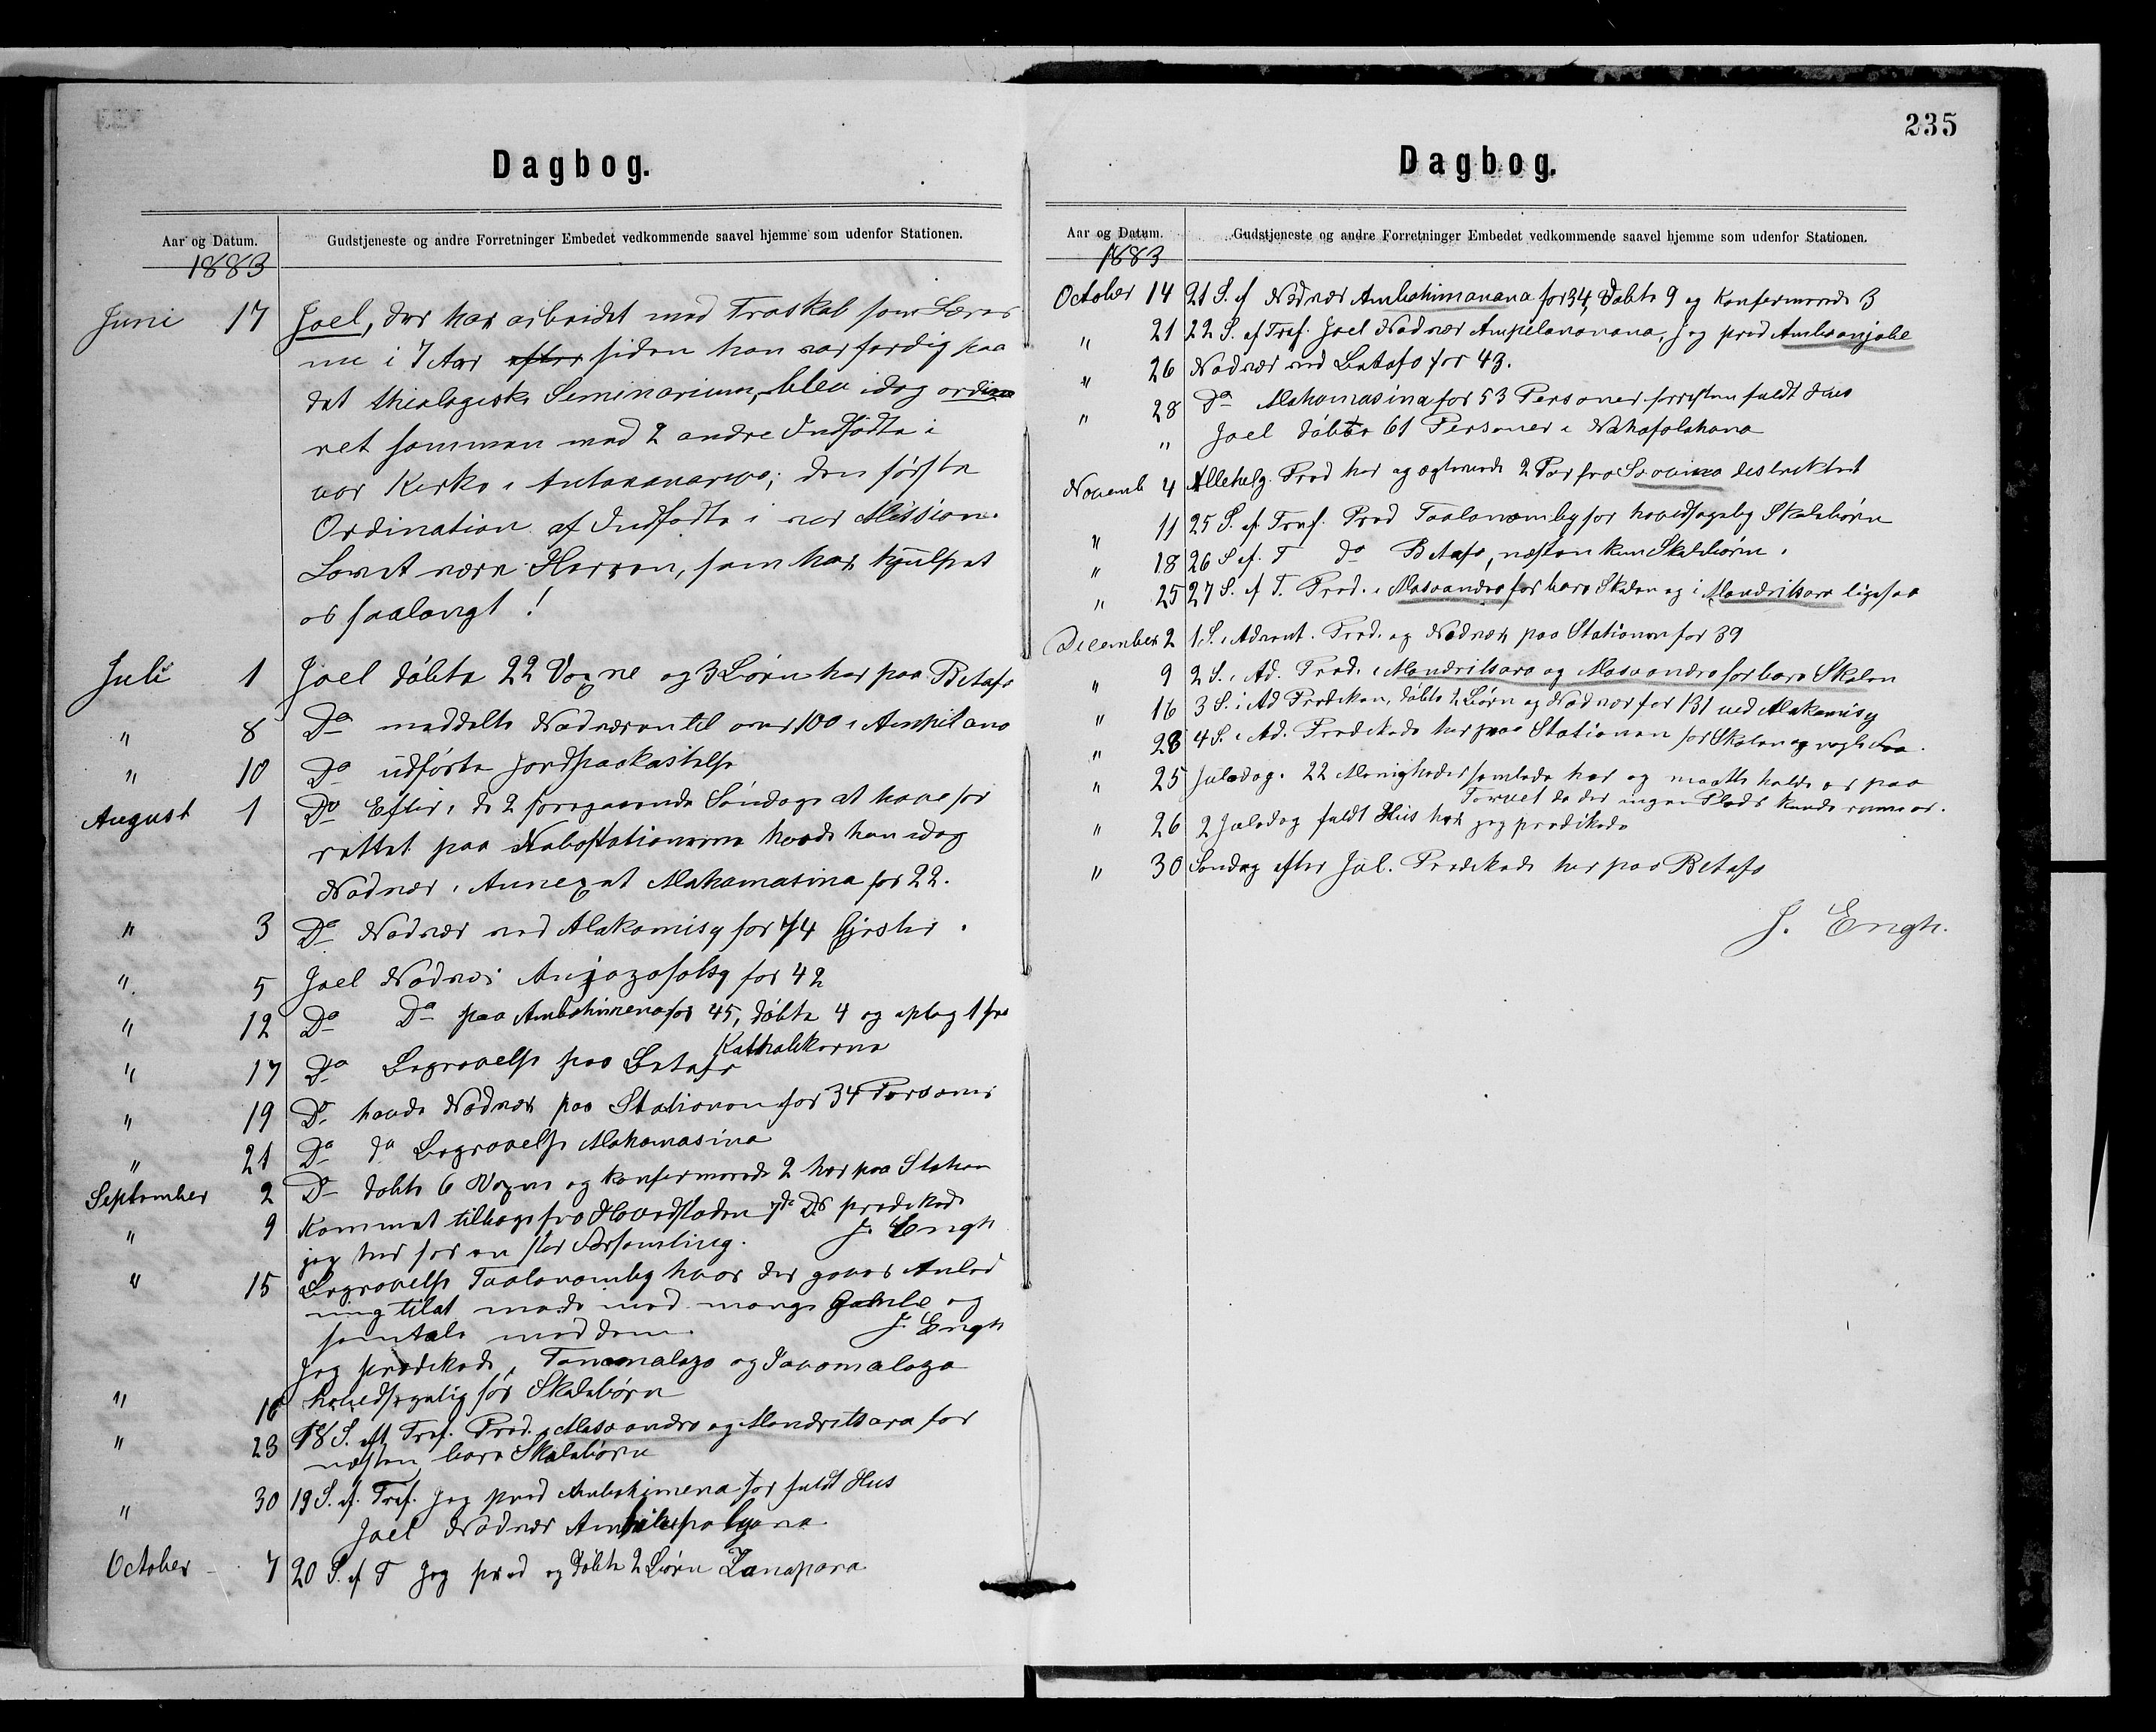 235
Dagbog.
Aar og Datum. Gudstjeneste og andre Forretninger Embedet vedkommende saavel hjemme som udenfor Stationen.
1883
Juni 17 Joel, der har arbeidet med Troskab som Lærer
nu i 7 Aar efter siden han var færdig paa
det theologiske Seminarium, blev idag ordine
ret sammen med 2 andre Indfødte i
vor Kirke i Antananarivo; den første
Ordination af Indfødte i vor Mission.
Lovet være Herren, som har hjulpet
os saalangt!
Juli 1 Joel døbte 22 Voxne og 3 Børn her paa Betafo
" 8 Do meddelte Nadveren til over 100 i Ampilano
" 10 Do udførte Jordpaakastelse
August 1 Do Efter i de 2 foregaaende Søndage at have for
rettet paa Nabostationerne havde han idag
Nadver i Annexet Mahamasina for 22.
" 3 Do Nadver ved Alakamisy for 74 Gjester.
" 5 Joel Nadver Anjazafotsy for 42
" 12 Do Do paa Ambohimena for 45, døbte 4 og optog 1 fra
Katholikerne
" 17 Do Begravelse paa Betafo
" 19 Do havde Nadver paa Stationen for 34 Personer
" 21 Do do Begravelse Mahamasina
September 2 Do døbte 6 Voxne og konfirmerede 2 her paa Station
" 9 Kommet tilbage fra Hovedstaden 7de Ds prædikede
jeg her for en stor Forsamling. J. Engh
" 15 Begravelse Taolanamby hvor der gaves Anled
ning til at møde med mange Gamle og
samtale med dem. J. Engh
Jeg prædikede i Tanamalaza og Savamalaza
" 16 hovedsagelig for Skolebørn
" 23 18 S. eft Tref. Præd. i Masoandro og Mandritsara for
næsten bare Skolebørn
" 30 19 S. ef. Tref. Jeg præd Ambohimena for fuldt Hus
Joel Nadver
October 7 20 S. ef T Jeg præd og døbte 2 Børn
Dagbog.
Aar og Datum. Gudstjeneste og andre Forretninger Embedet vedkommende saavel hjemme som udenfor Stationen.
1883
October 14 21 S. ef Nadver Ambohimanana for 34, døbte 9 og konfirmerede 3
" 21 22 S. ef Tref. Joel Nadver Ampilanonana, Jeg præd Amboanjobe
" 26 Nadver ved Betafo for 43.
" 28 Do Mahamasina for 53 Personer forresten fuldt Hus
" Joel døbte 61 Personer i
Novemb 4 Allehelg. Præd her og ægteviede 2 Par fra Soavina destriktet
" 11 25 S. ef. Tref. Præd Taolanamby for hovedsagelig Skolebørn
" 18 26 S ef. T do Betafo, næsten kun Skolebørn.
" 25 27 S. ef T. Præd. i Masoandro for bare Skolen og i Mandritsara ligesaa
December 2 1 S. i Advent. Præd. og Nadver paa Stationen for 39
" 9 2 S. i Ad. Præd. i Mandritsara og Masoandro for bare Skolen
" 16 3 S. i Ad Prædiken, døbte 2 Børn og Nadver for 131 ved Alakamisy
" 23 4 S. i Ad. Prædikede her paa Stationen for Skolen og nogle Faa.
" 25 Juledag. 22 Menigheder samlede her og maatte holde os paa
Torvet da der ingen Plads kunde rumme os.
" 26 2 Juledag fuldt Hus her jeg prædikede
" 30 Søndag efter Jul. Prædikede her paa Betafo
J. Engh.